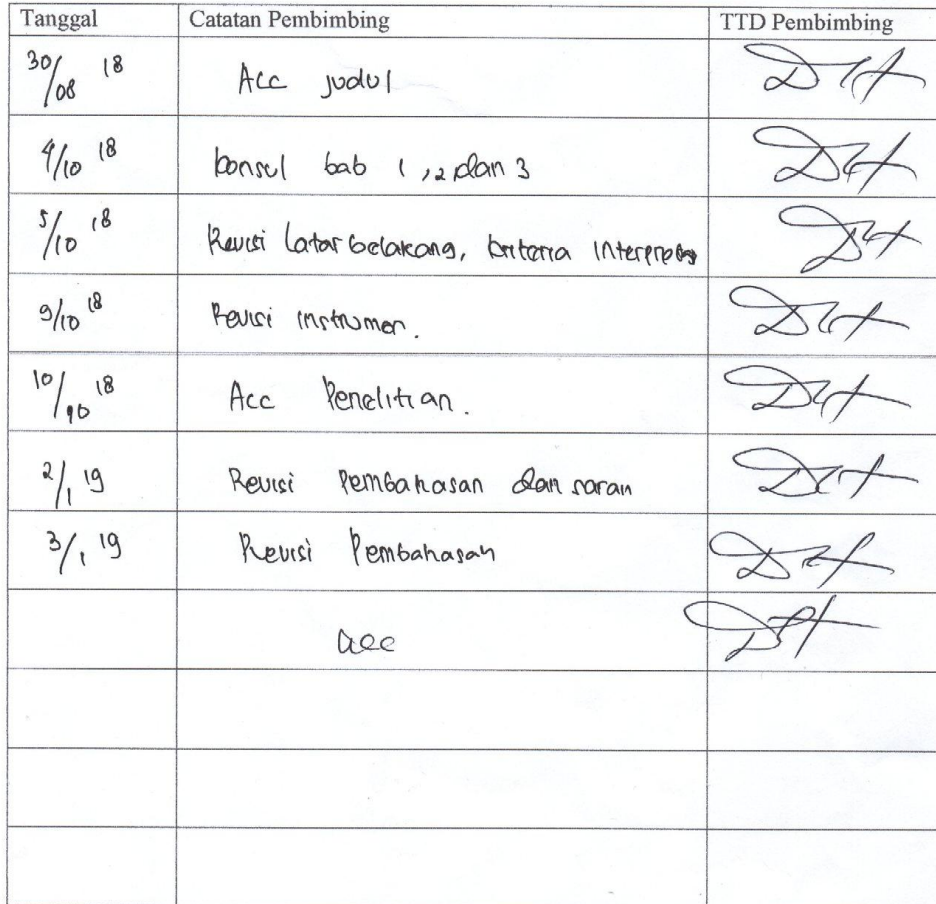 Tanggal Catatan Pembimbing TTD Pembimbing
30/08 18 Acc judul
4/10 18 konsul bab 1, 2 dan 3
5/10 18 Revisi Latar belakang, kriteria Interpretasi
9/10 18 Revisi instrumen.
10/10 18 Acc Penelitian.
2/1 19 Revisi Pembahasan dan saran
3/1 19 Revisi Pembahasan
acc